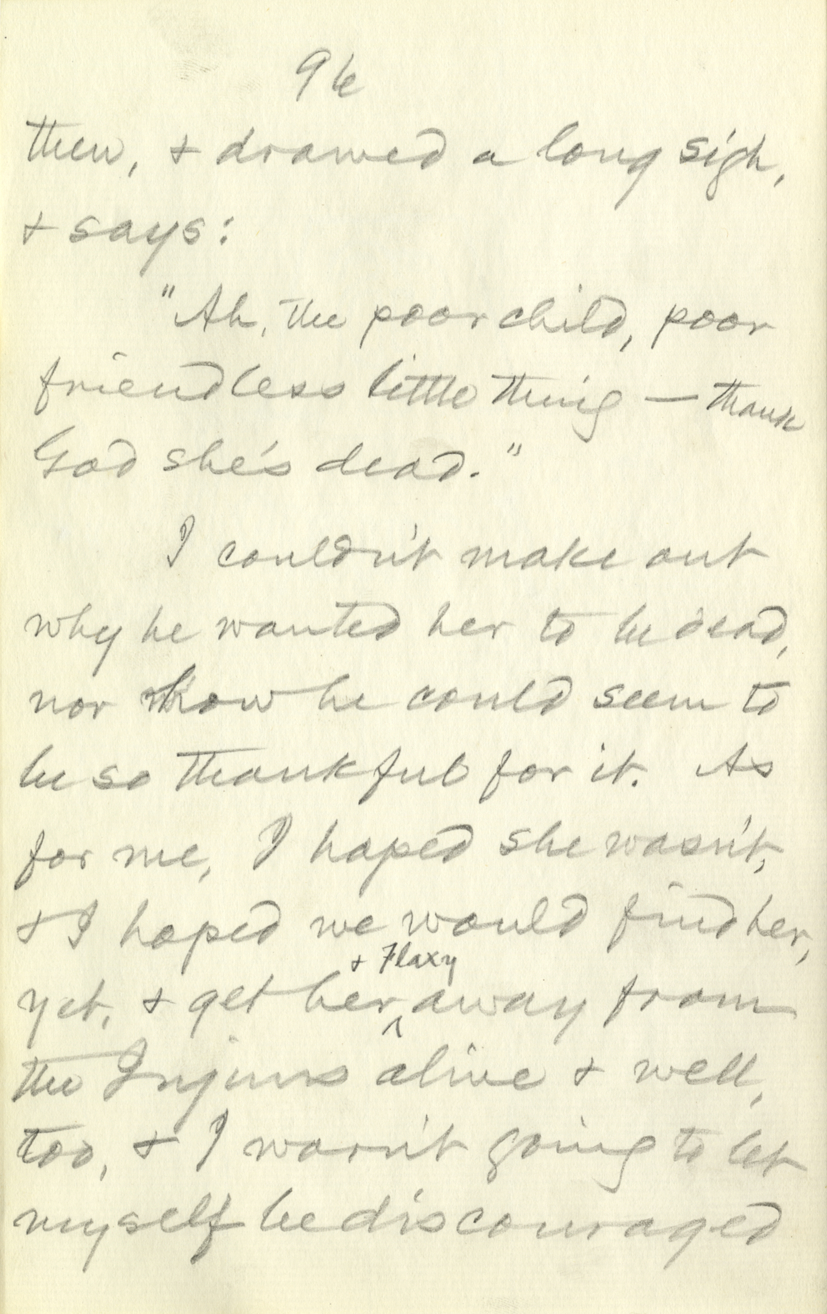 96
then, & drawed a long sigh,
& says:
"Ah, the poor child, poor
friendless little thing — thank
God she's dead."
I couldn't make out
why he wanted her to be dead,
nor how he could seem to
be so thankful for it. As
for me, I hoped she wasn't,
& I hoped we would find her,
& Flaxy
yet, & get her ^ away from
the Injuns alive & well,
too, & I warn't going to let
myself be discouraged